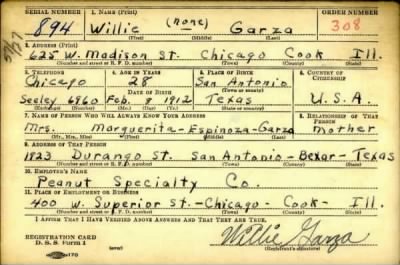 SERIAL NUMBER 1. NAME (Print) ORDER NUMBER
894 Willie (none) Garza 308
(First) (Middle) (Last)
2. ADDRESS (Print)
625 W. Madison St. Chicago Cook Ill.
(Number and street or R. F. D. number) (Town) (County) (State)
3. TELEPHONE 4. AGE IN YEARS 5. PLACE OF BIRTH 6. COUNTRY OF CITIZENSHIP
Chicago 28 San Antonio
DATE OF BIRTH (Town or county)
Seeley 6960 Feb. 8 1912 Texas U.S.A.
(Exchange) (No.) (Mo.) (Day) (Yr.) (State or country)
7. NAME OF PERSON WHO WILL ALWAYS KNOW YOUR ADDRESS 8. RELATIONSHIP OF THAT PERSON
Mrs. Marguerita-Espinoza-Garza mother
(Mr., Mrs., Miss) (First) (Middle) (Last)
9. ADDRESS OF THAT PERSON
1923 Durango St. San Antonio-Bexar-Texas
(Number and street or R. F. D. number) (Town) (County) (State)
10. EMPLOYER'S NAME
Peanut Specialty Co.
11. PLACE OF EMPLOYMENT OR BUSINESS
400 W. Superior St.-Chicago-Cook-Ill.
(Number and street or R. F. D. number) (Town) (County) (State)
I AFFIRM THAT I HAVE VERIFIED ABOVE ANSWERS AND THAT THEY ARE TRUE.
REGISTRATION CARD
D. S. S. Form 1 Willie Garza
(Registrant's signature)